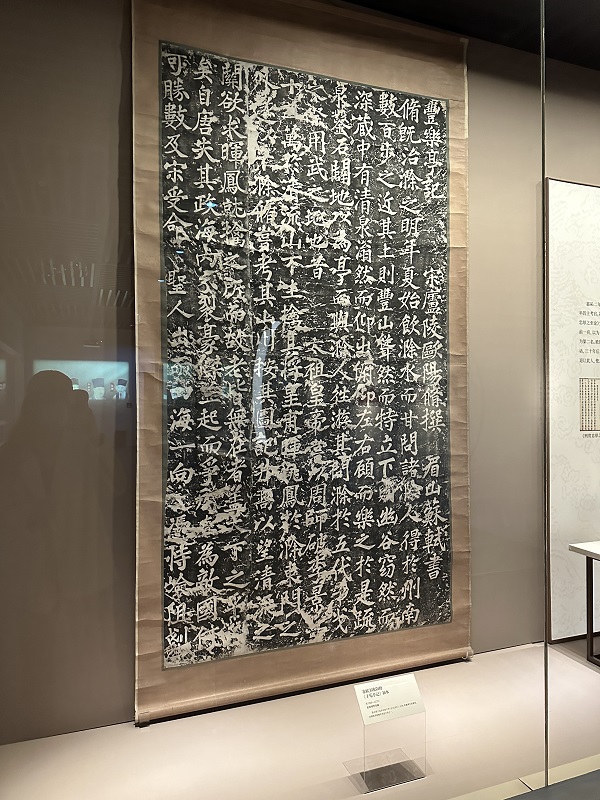 豐樂亭記 宋廬陵歐陽脩撰 眉山蘇軾書
脩既治滁之明年夏始飲滁水而甘問諸滁人得於州南
數百步之近其上則豐山聳然而特立下則幽谷窈然而
深藏中有清泉滃然而仰出俯仰左右顧而樂之於是疏
泉鑿石闢地以為亭而與滁人往游其間滁於五代干戈
之用武之地也昔 太祖皇帝嘗以周師破李景
十萬於清流山下生擒其將皇甫暉姚鳳於滁東門之
外遂以平滁脩嘗考其山川按其圖記升高以望清流之
關欲求暉鳳就擒之所而故老皆無在者蓋天下之平久
矣自唐失其政海內分裂豪傑並起而爭為敵國何
可勝數及宋受命聖人出而四海一向之憑恃險阻剗